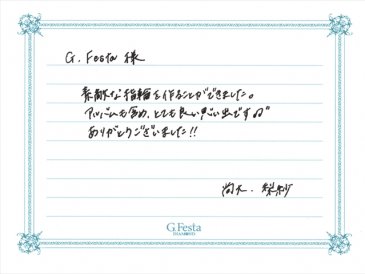 G. Festa 様
素敵な指輪を作ることができました。
アルバムも含め、とても良い思い出です
ありがとうございました!!
尚大・梨紗
G.Festa
DIAMOND